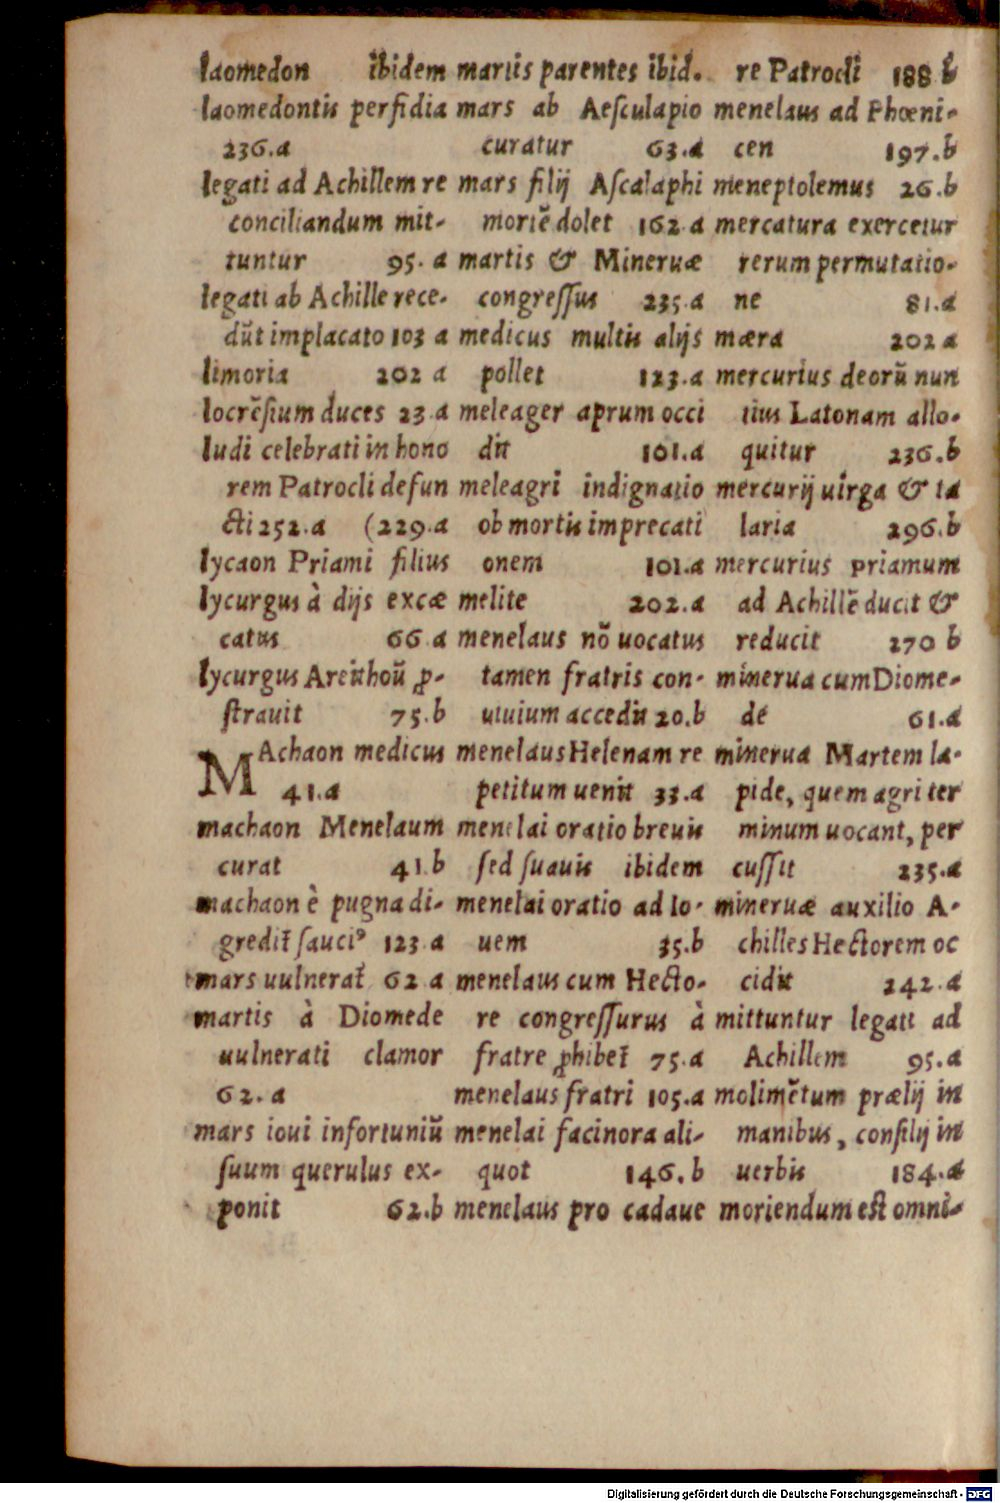 laomedon ibidem
laomedontis perfidia
236.a
legati ad Achillem re
conciliandum mit-
tuntur 95. a
legati ab Achille rece-
dūt implacato 103 a
limoria 202 a
locrēsium duces 23.a
ludi celebrati in hono
rem Patrocli defun
cti 252.a (229.a
lycaon Priami filius
lycurgus à dijs excæ
catus 66 a
lycurgus Areithoū ꝓ-
strauit 75.b
MAchaon medicus
41.a
machaon Menelaum
curat 41.b
machaon è pugna di-
gredit᷑ sauciꝰ 123 a
mars uulnerat᷑ 62 a
martis à Diomede
uulnerati clamor
62. a
mars ioui infortuniū
suum querulus ex-
ponit 62.b
martis parentes ibid.
mars ab Aesculapio
curatur 63.a
mars filij Ascalaphi
mortē dolet 162.a
martis & Mineruæ
congressus 235.a
medicus multis alijs
pollet 123.a
meleager aprum occi
dit 101.a
meleagri indignatio
ob mortis imprecati
onem 101.a
melite 202.a
menelaus nō uocatus
tamen fratris con-
uiuium accedit 20.b
menelaus Helenam re
petitum uenit 33.a
menelai oratio breuis
sed suauis ibidem
menelai oratio ad Io-
uem 35.b
menelaus cum Hecto-
re congressurus à
fratre ꝓhibet᷑ 75.a
menelaus fratri 105.a
menelai facinora ali-
quot 146.b
menelaus pro cadaue
re Patrocli 188 b
menelaus ad Phœni-
cen 197.b
meneptolemus 26.b
mercatura exercetur
rerum permutatio-
ne 81.a
mæra 202 a
mercurius deorū nun
tius Latonam allo-
quitur 236.b
mercurij uirga & ta
laria 296.b
mercurius priamum
ad Achillē ducit &
reducit 270 b
minerua cum Diome-
de 61.a
minerua Martem la-
pide, quem agri ter
minum uocant, per
cussit 235.a
mineruæ auxilio A-
chilles Hectorem oc
cidit 242.a
mittuntur legati ad
Achillem 95.a
molimētum prælij in
manibus, consilij in
uerbis 184.a
moriendum est omni-
Digitalisierung gefördert durch die Deutsche Forschungsgemeinschaft - DFG